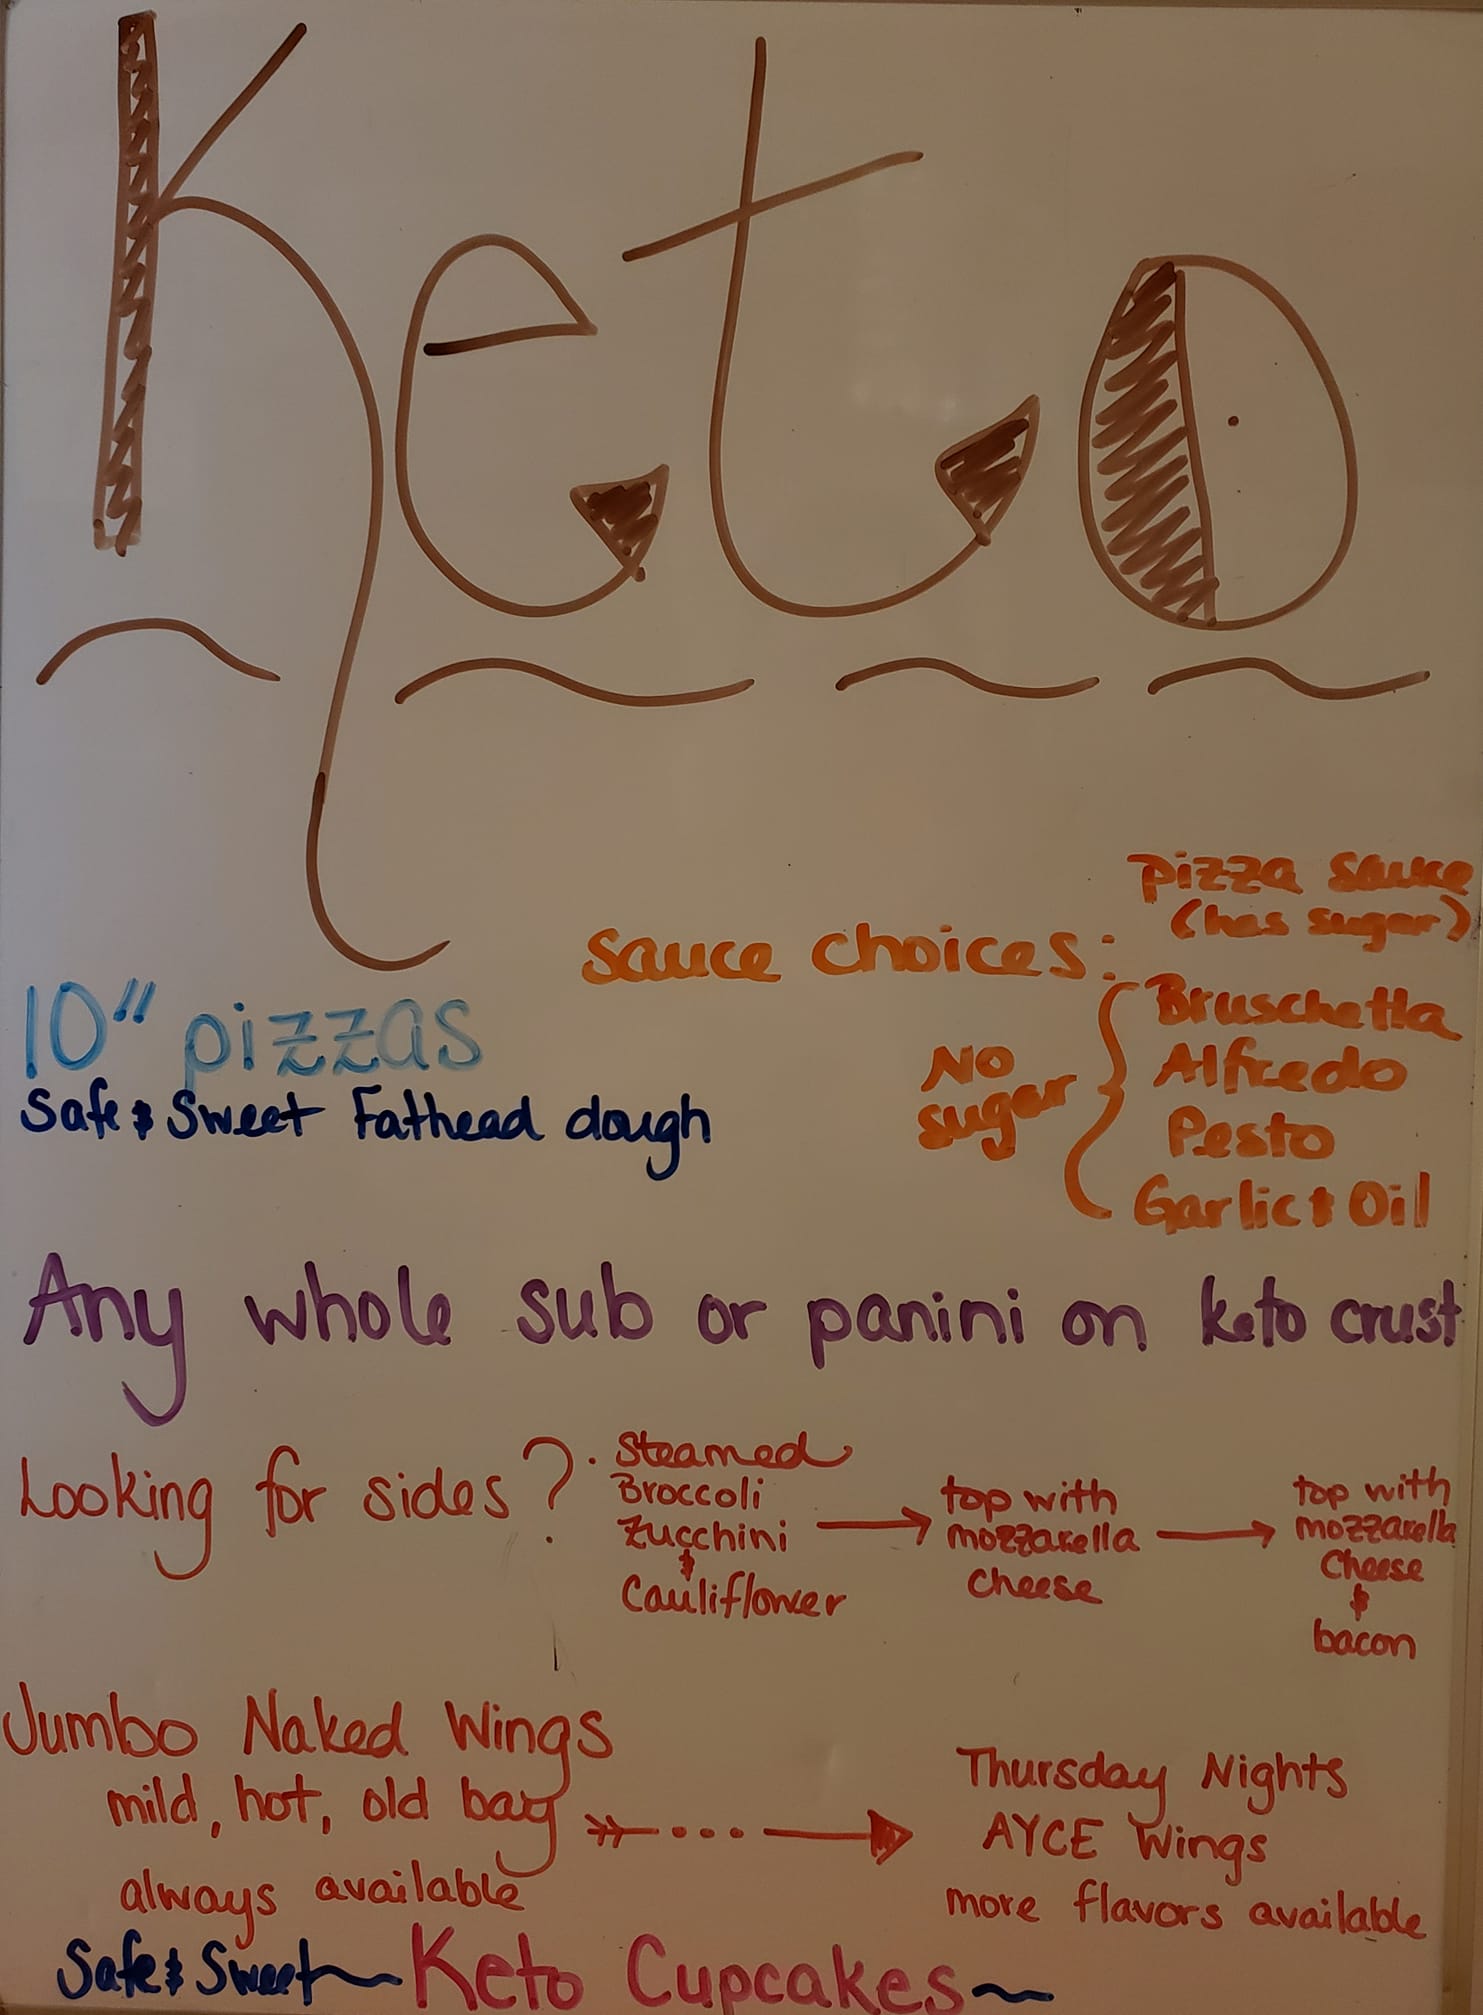 Keto
Sauce choices:
pizza sauce
(has sugar)
No
sugar
Bruschetta
Alfredo
Pesto
Garlic & Oil
10" pizzas
Safe & Sweet Fathead dough
Any whole sub or panini on keto crust
Looking for sides?
• Steamed
Broccoli
Zucchini
&
Cauliflower
top with
mozzarella
cheese
top with
mozzarella
Cheese
&
bacon
Jumbo Naked Wings
mild, hot, old bay
always available
Thursday Nights
AYCE Wings
more flavors available
Safe & Sweet ~ Keto Cupcakes ~